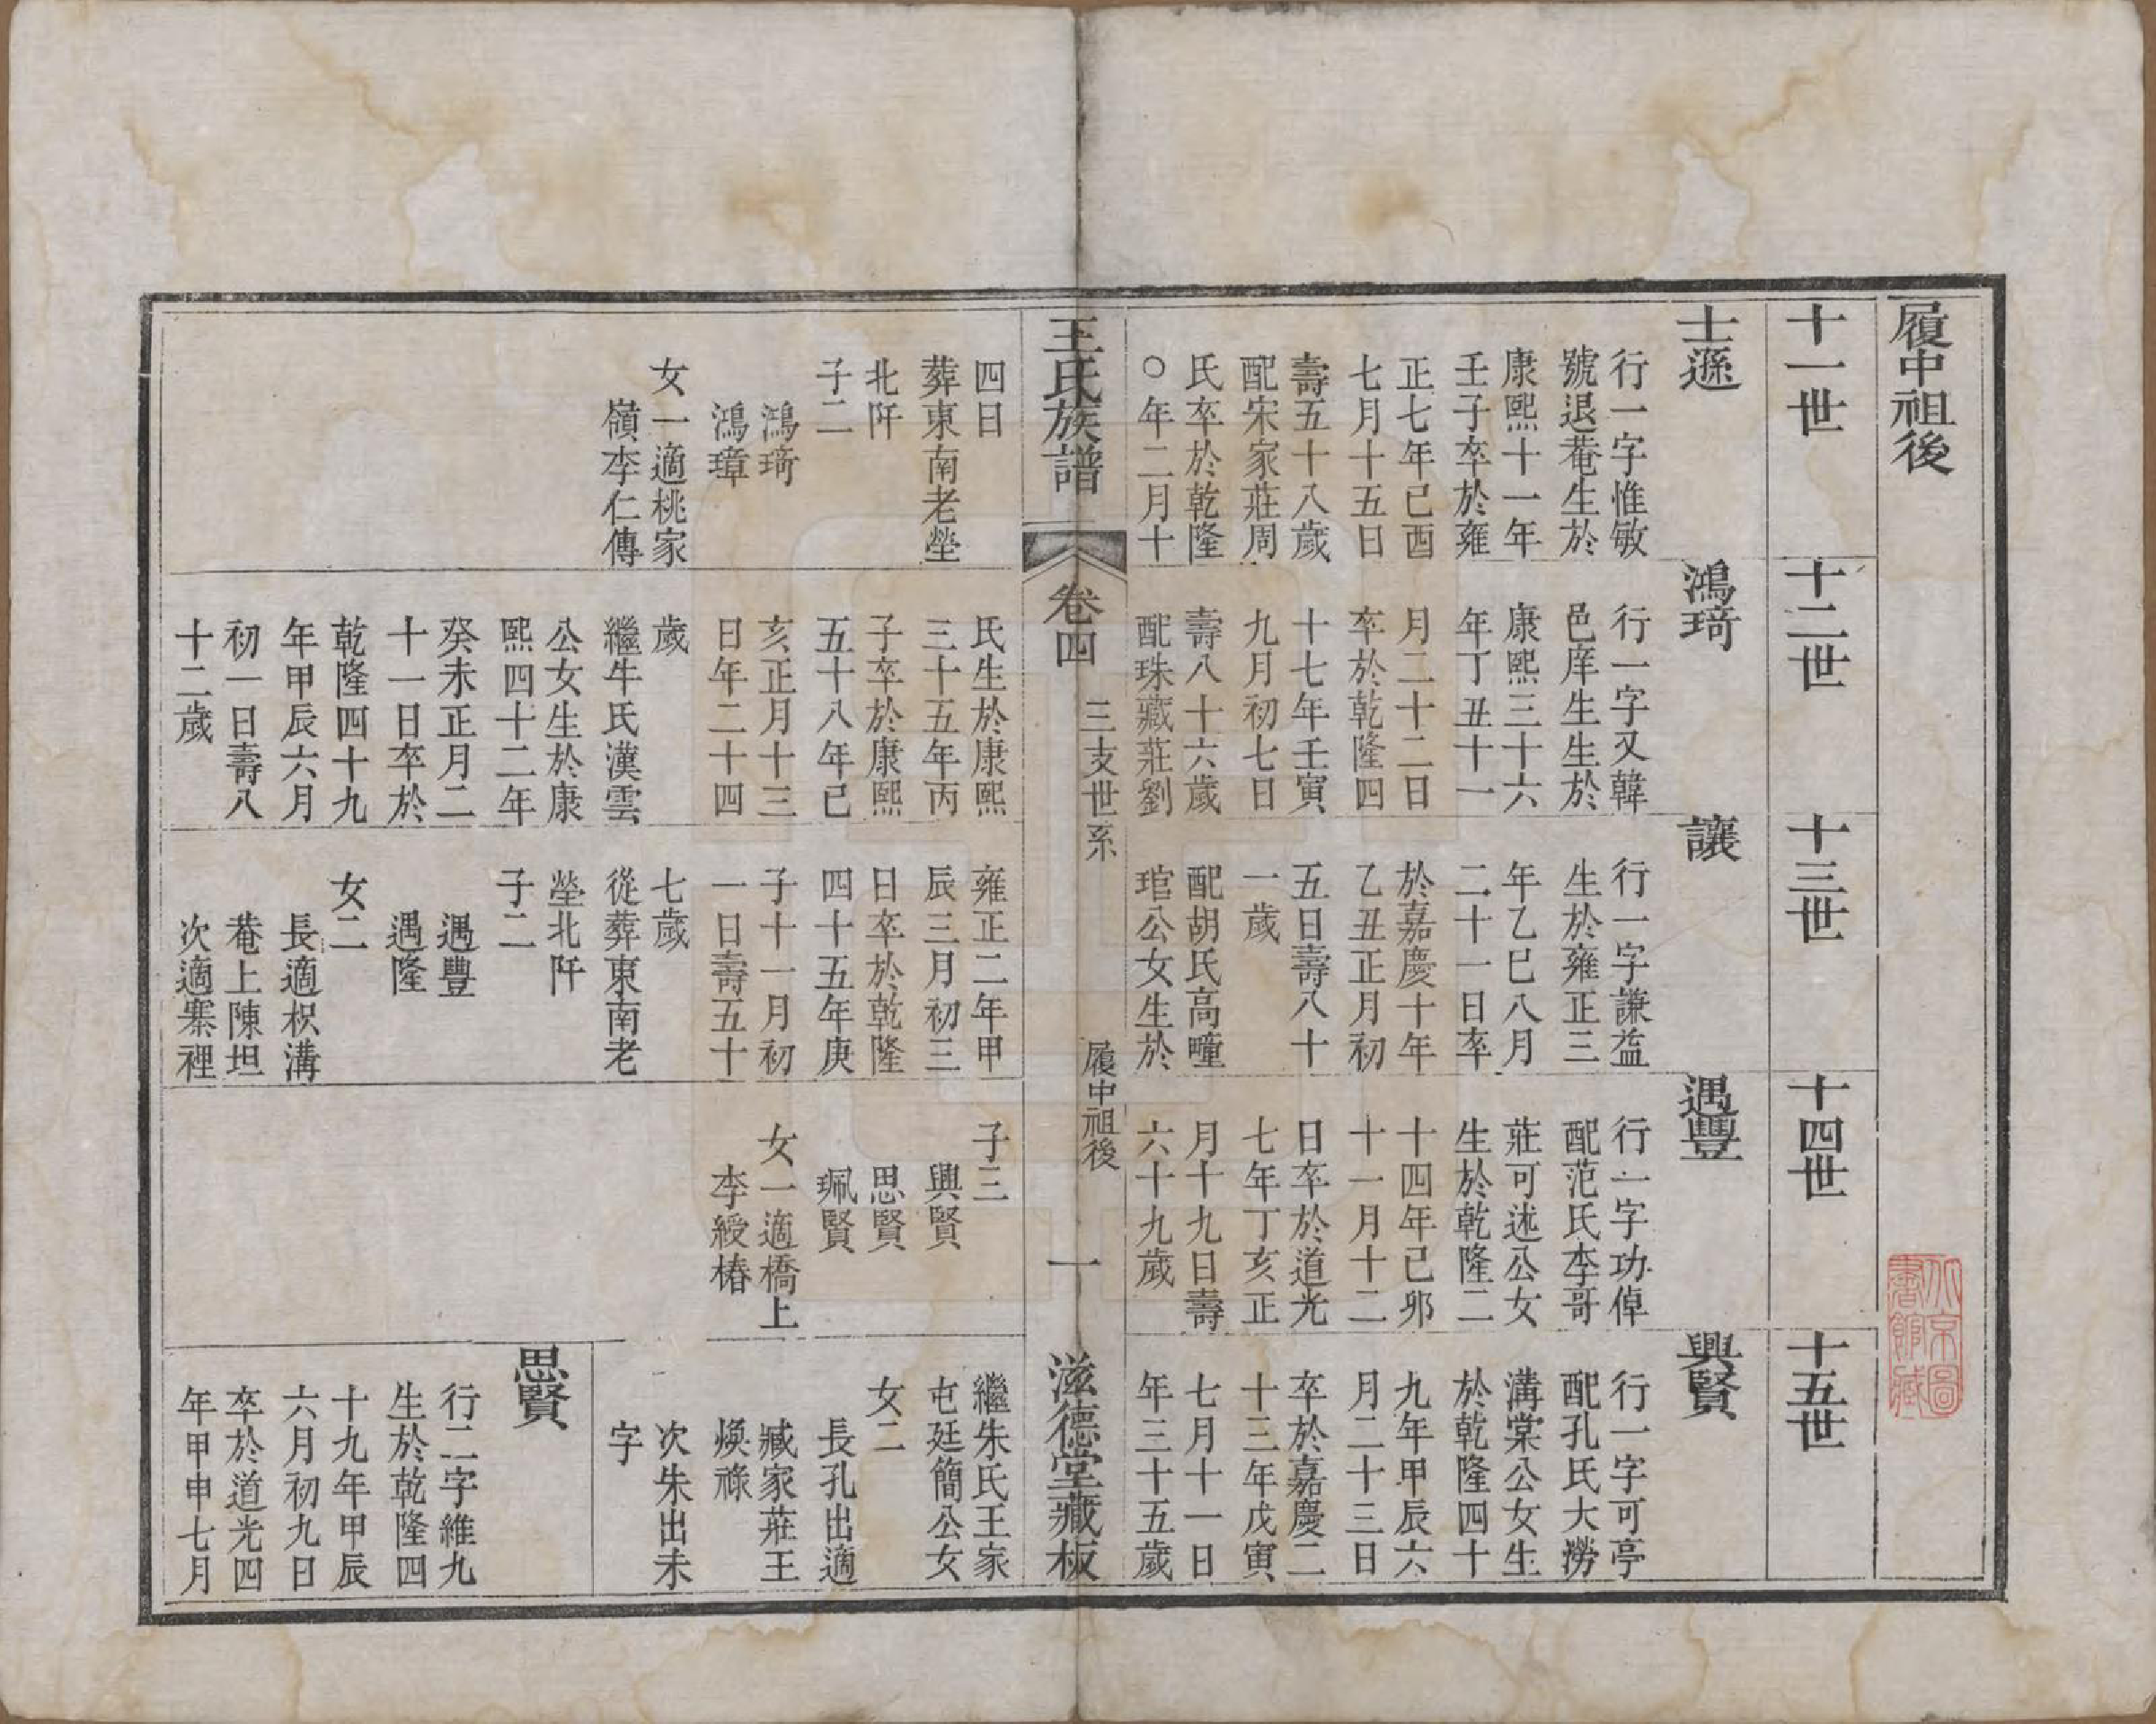 履中祖後
十一世
十二世
十三世
十四世
十五世
士遜
行一字惟敏
號退菴生於
康熙十一年
壬子卒於雍
正七年己酉
七月十五日
壽五十八歲
配宋家莊周
氏卒於乾隆
○年二月十
四日
葬東南老塋
北阡
子二
鴻琦
鴻璋
女一適桃家
嶺李仁傳
鴻琦
行一字又韓
邑庠生生於
康熙三十六
年丁丑十一
月二十二日
卒於乾隆四
十七年壬寅
九月初七日
壽八十六歲
配珠藏莊劉
氏生於康熙
三十五年丙
子卒於康熙
五十八年己
亥正月十三
日年二十四
歲
繼牛氏漢雲
公女生於康
熙四十二年
癸未正月二
十一日卒於
乾隆四十九
年甲辰六月
初一日壽八
十二歲
讓
行一字謙益
生於雍正三
年乙巳八月
二十一日卒
於嘉慶十年
乙丑正月初
五日壽八十
一歲
配胡氏高疃
琯公女生於
雍正二年甲
辰三月初三
日卒於乾隆
四十五年庚
子十一月初
一日壽五十
七歲
從葬東南老
塋北阡
子二
遇豐
遇隆
女二
長適枳溝
菴上陳坦
次適寨裡
遇豐
行一字功倬
配范氏李哥
莊可述公女
生於乾隆二
十四年己卯
十一月十二
日卒於道光
七年丁亥正
月十九日壽
六十九歲
子三
興賢
思賢
珮賢
女一適橋上
李綬椿
興賢
行一字可亭
配孔氏大澇
溝棠公女生
於乾隆四十
九年甲辰六
月二十三日
卒於嘉慶二
十三年戊寅
七月十一日
年三十五歲
繼朱氏王家
屯廷簡公女
女二
長孔出適
臧家莊王
煥祿
次朱出未
字
思賢
行二字維九
生於乾隆四
十九年甲辰
六月初九日
卒於道光四
年甲申七月
王氏族譜
卷四
三支世系
履中祖後
十
滋德堂藏板
北京圖
書館藏